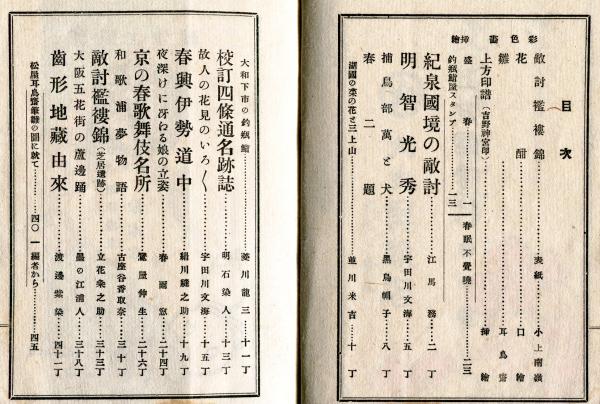 目次
彩色密挿繪
敵討襤褸錦……表紙……小上南嶺
花……口繪
雛……耳鳥齋
上方印譜(吉野神宮印)……挿繪
盛春……一
春眠不覺曉……二三
釣瓶鮨屋スタンプ……一三
紀泉國境の敵討……江馬務……二丁
明智光秀……宇田川文海……五丁
捕鳥部萬と犬……黒烏帽子……八丁
春二題
湖國の菜の花と三上山……並川米吉……十丁
大和下市の釣瓶鮨……菱川龍三……十一丁
校訂四條通名跡誌……明石染人……十三丁
故人の花見のいろ〱……宇田川文海……十五丁
春興伊勢道中……絹川縫之助……十九丁
夜深けに冴わる娘の立姿……春雨窓……二十四丁
京の春歌舞伎名所……鷺屋伸生……二十六丁
和歌浦夢物語……古座谷香取奈……三十丁
敵討襤褸錦(芝居遺跡)……立花粂之助……三十三丁
大阪五花街の蘆邊踊……墨の江浦人……三十八丁
齒形地藏由來……渡邊紫染……四十二丁
松屋耳鳥齋筆雛の圖に就て……四〇
編者から……四五